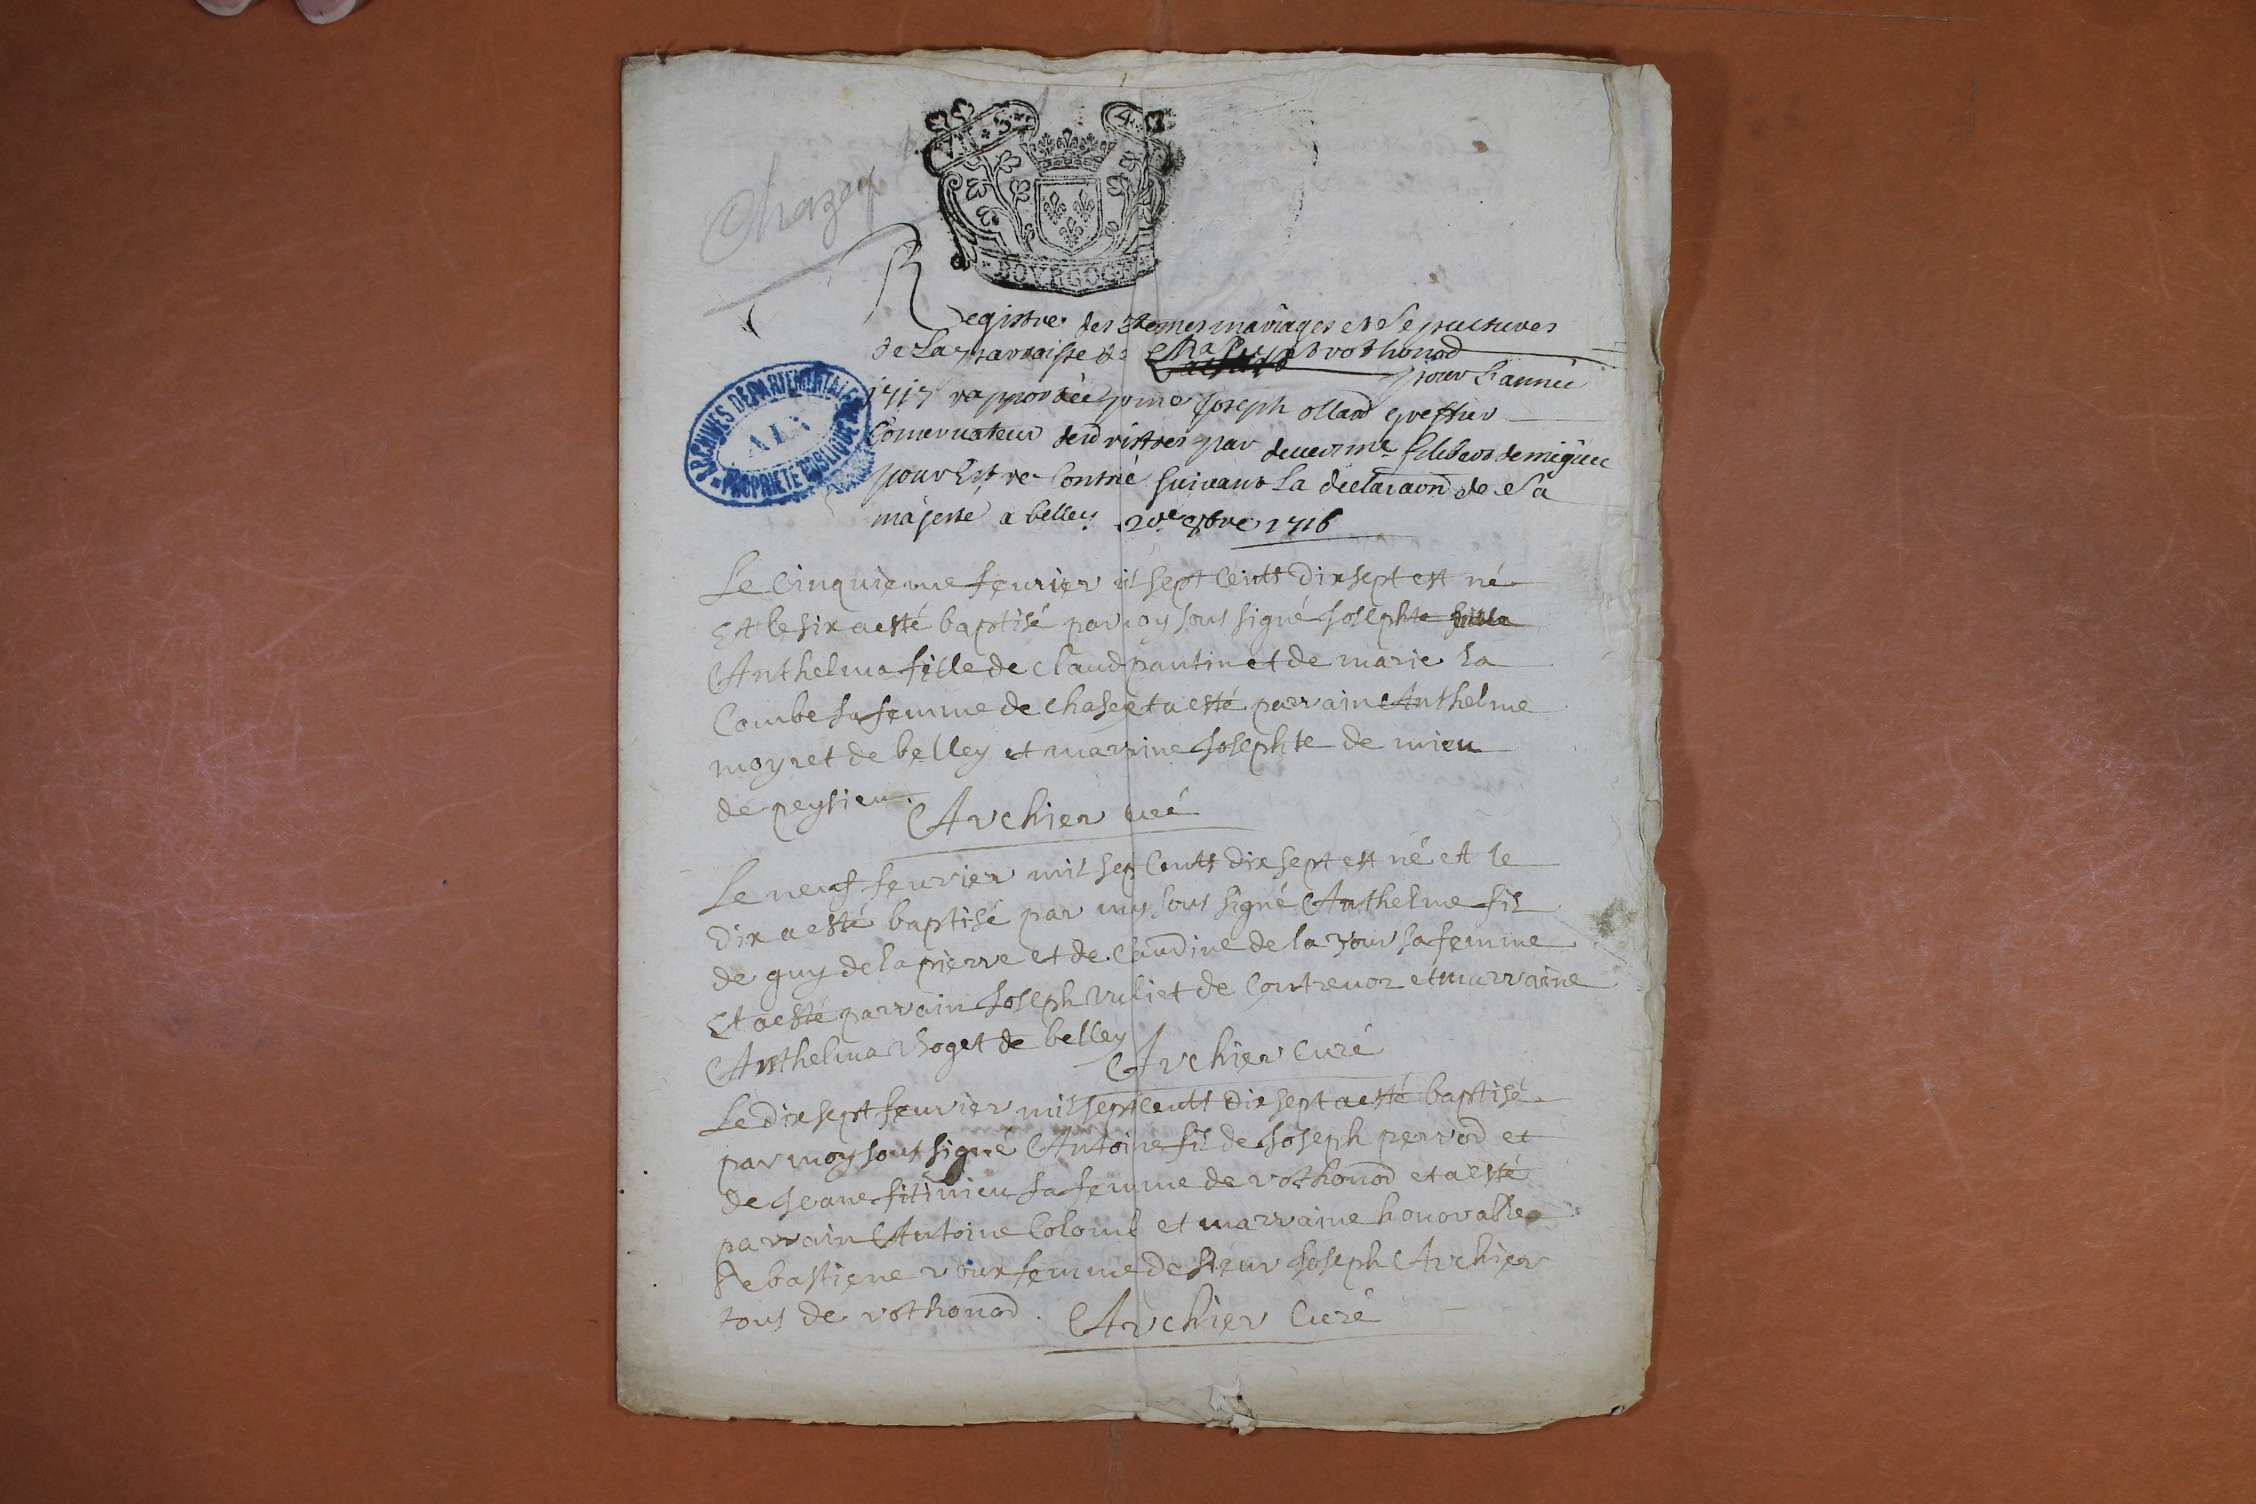 Chazey
BOVRGOGNE
ARCHIVES DEPARTEMENTALES
AIN
PROPRIETE PUBLIQUE
Registre des Btemes mariages et Sepultures
de La parroisse de Chasey et rothonod
pour L'année
1717 rapportée par me Joseph ollard greffier
Conservateur desd ristres par devers me
pour Estre Contrié suivant La declaraon de Sa
majesté a belley 2de xbre 1716
Le Cinquieme feurier il sept Cents Dix sept est né
Et le six a esté baptisé par oy sous signé Josephte fille
Anthelma fille de Claud pantin et de marie La
Combe sa femme de Chase et a esté parrain Anthelme
moyret de belley et marrine Josephte de mieu
de peysieu. Archier curé
Le neuf feurier mil sept Cents dix sept est né et le
Dix a esté baptisé par moy sous signé Anthelme fil
de guy de la pierre et de Claudine de la Tour sa femme
Et a esté parrain Joseph vuliet de Contrevoz et marraine
Anthelma Roget de belley Archier Curé
Le dix sept feurier mil sept Cents Dix sept a esté baptisé
par moy sous signé Antoine fil de Joseph perrod et
de Jeane fitinieu sa femme de rothonod et a esté
parrain Antoine Colomb et marraine honorable
Sebastiene roux femme de Sieur Joseph Archier
tous de rothonod. Archier Curé